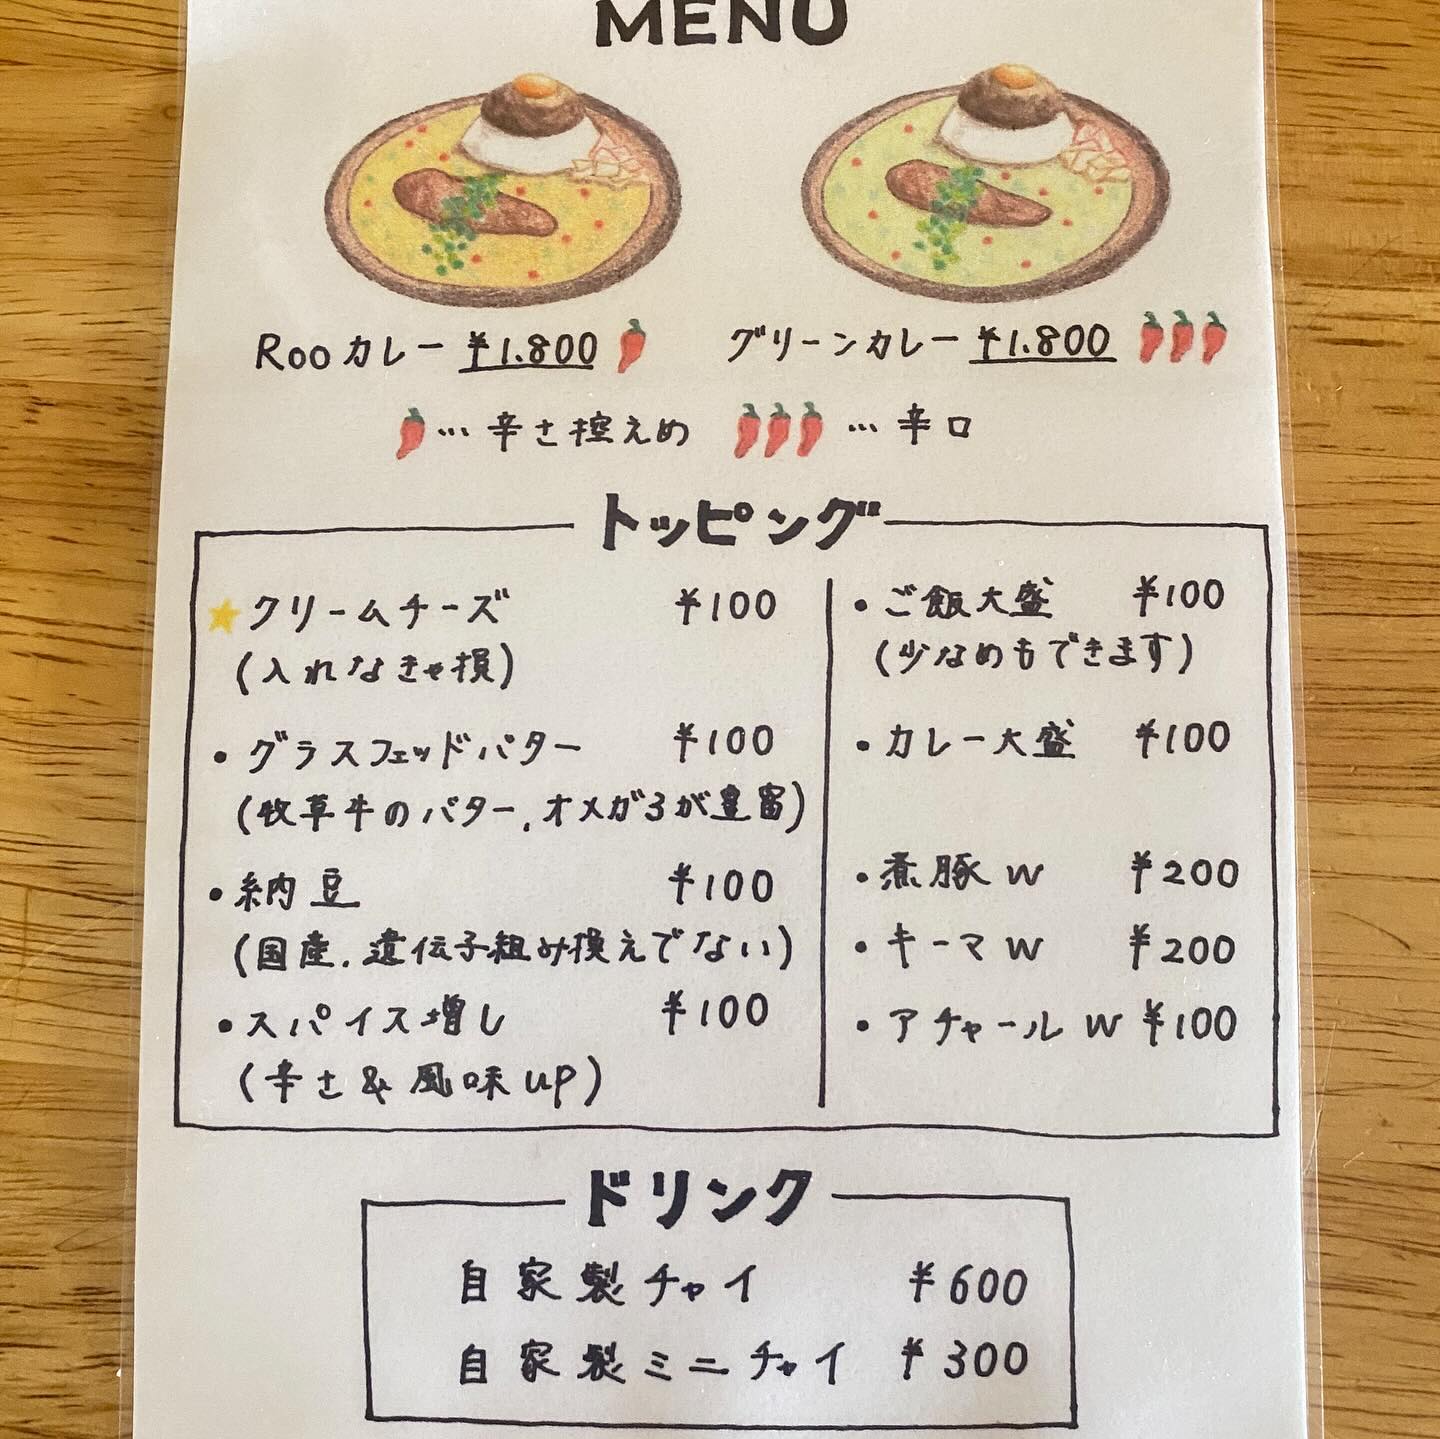 MENU
Rooカレー ¥1.800 グリーンカレー ¥1.800
…辛さ控えめ …辛口
トッピング
クリームチーズ ¥100
(入れなきゃ損)
・グラスフェッドバター ¥100
(牧草牛のバター,オメガ3が豊富)
・納豆 ¥100
(国産.遺伝子組み換えでない)
・スパイス増し ¥100
(辛さ&風味up)
・ご飯大盛 ¥100
(少なめもできます)
・カレー大盛 ¥100
・煮豚W ¥200
・キーマW ¥200
・アチャールW ¥100
ドリンク
自家製チャイ ¥600
自家製ミニチャイ ¥300